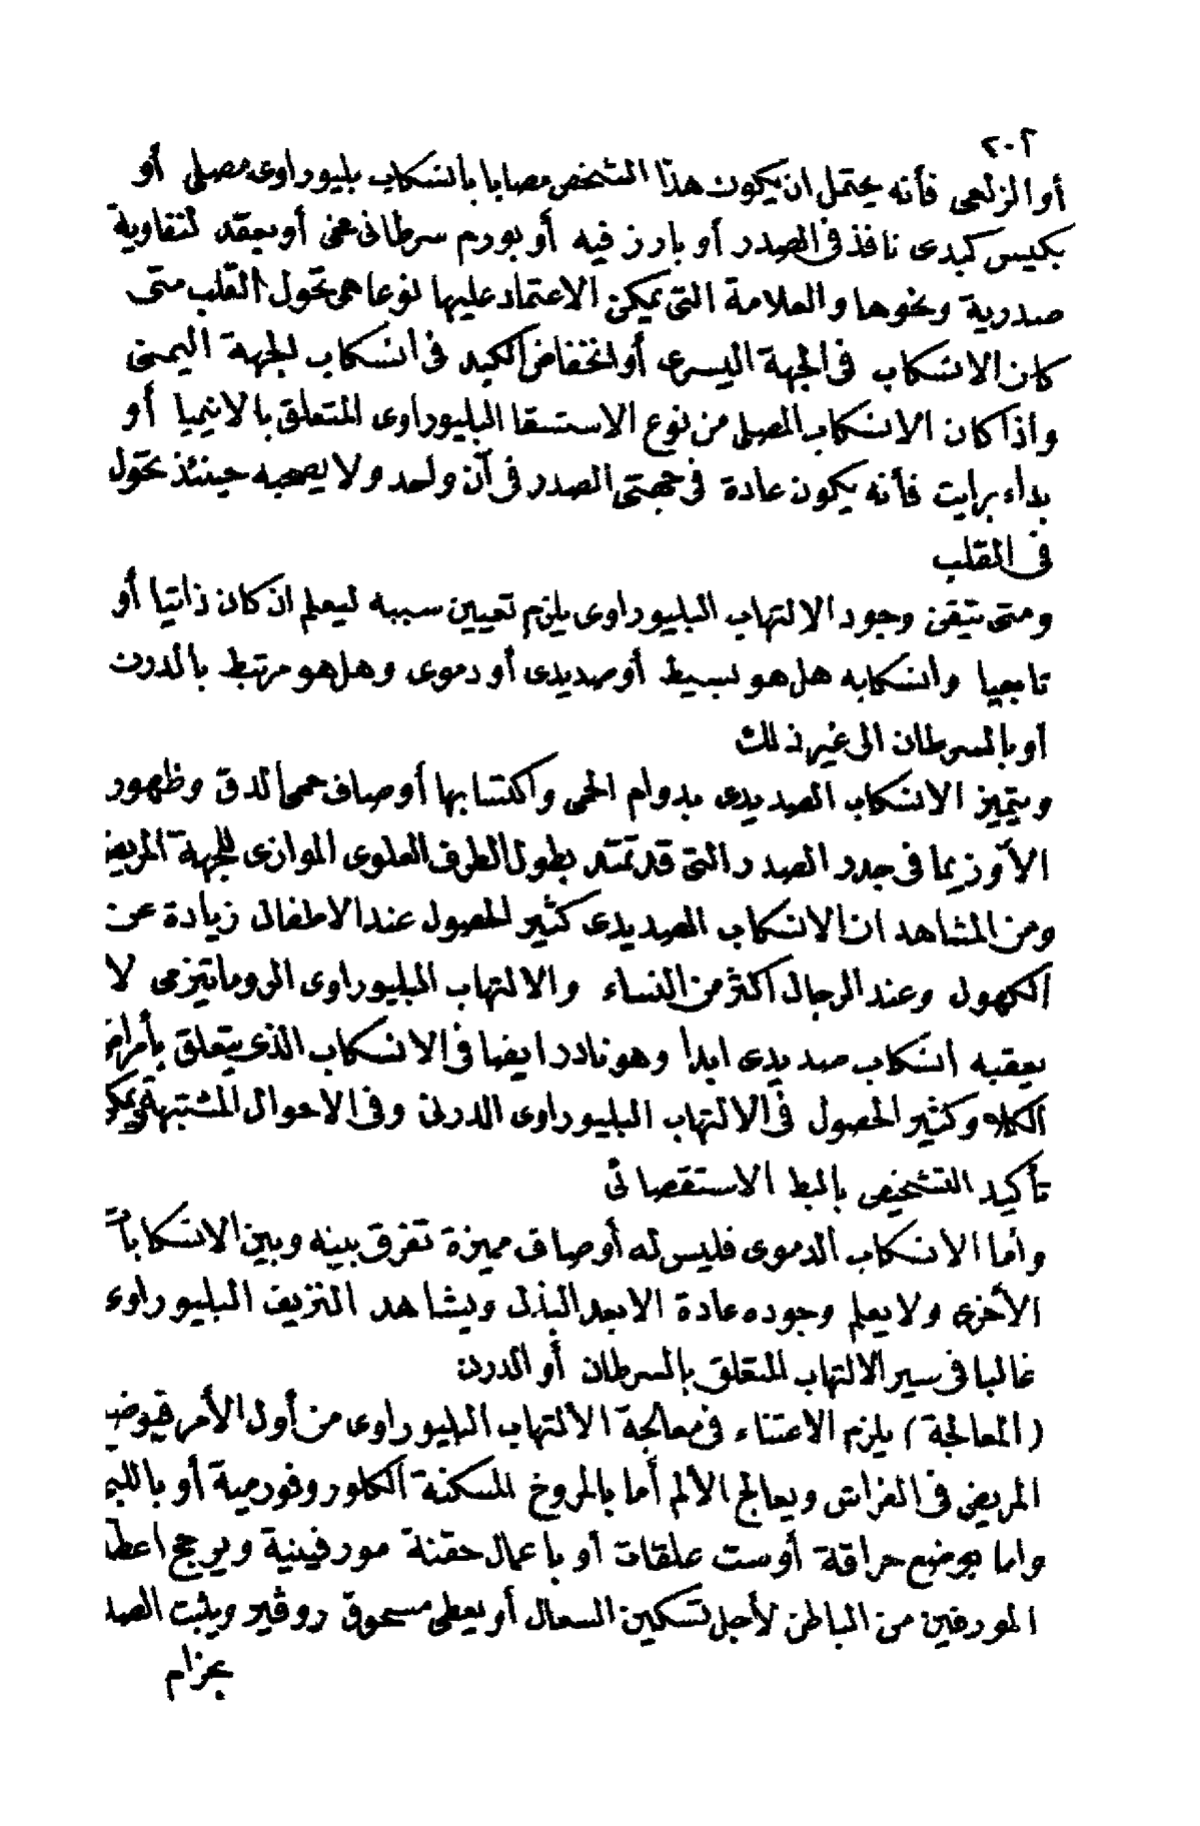 ٢٠٢
أو الزلعمى فأنه يحتمل ان يكون هذا الشخص مصابا بانسكاب بليوراوى مصلى أو
بكيس كبدى نافذ فى الصدر أو بارز فيه أو بورم سرطانى مخى أو بعقد لنفاوية
صدرية ونحوها والعلامة التى يمكن الاعتماد عليها نوعا هى تحول القلب متى
كان الانسكاب فى الجهة اليسرى أو انخفاض الكبد فى انسكاب الجهة اليمنى
واذا كان الانسكاب المصلى من نوع الاستسقا البليوراوى المتعلق بالانيميا أو
بداء برايت فأنه يكون عادة فى جهتى الصدر فى آن واحد ولا يصحبه حينئذ تحول
فى القلب
ومتى تيقن وجود الالتهاب البليوراوى يلزم تعيين سببه ليعلم ان كان ذاتيا أو
تابعيا وانسكابه هل هو بسيط أو صديدى أو دموى وهل هو مرتبط بالدرن
أو بالسرطان الى غير ذلك
ويتميز الانسكاب الصديدى بدوام الحمى واكتسابها أوصاف حمى الدق وظهور
الأوزيما فى جدر الصدر التى قد تمتد بطول الطرف العلوى الموازى للجهة المريضـ
ومن المشاهد ان الانسكاب الصديدى كثير الحصول عند الاطفال زيادة عن
الكهول وعند الرجال اكثر من النساء والالتهاب البليوراوى الروماتيزمى لا
يعقبه انسكاب صديدى ابدا وهو نادر ايضا فى الانسكاب الذى يتعلق بأمراض
الكلا وكثير الحصول فى الالتهاب البليوراوى الدرنى وفى الاحوال المشتبهة يمكن
تأكيد التشخيص بالبط الاستقصائى
وأما الانسكاب الدموى فليس له أوصاف مميزة تفرق بينه وبين الانسكابات
الأخرى ولا يعلم وجوده عادة الا بعد البذل ويشاهد النزيف البليوراوى
غالبا فى سير الالتهاب المتعلق بالسرطان أو الدرن
(المعالجة) يلزم الاعتناء فى معالجة الالتهاب البليوراوى من أول الأمر فيوضع
المريض فى الفراش ويعالج الألم أما بالمروخ المسكنة الكلوروفورمية أو باللبخ
واما بوضع حراقة أو ست علقات أو باعمال حقنة مورفينية ويرجح اعطا
المورفين من الباطن لأجل تسكين السعال أو يعطى مسحوق روڤير ويثبت الصد
بحزام